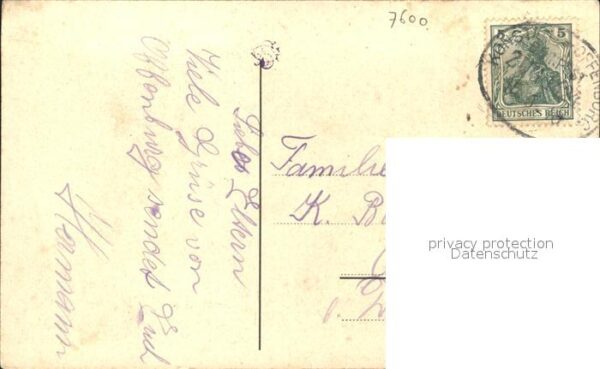 7600
5 5
DEUTSCHES REICH
OFFENBURG
Liebe Eltern
Viele Grüse von
Offenburg sendet Euch
Hermann
Familie
K. B
privacy protection
Datenschutz